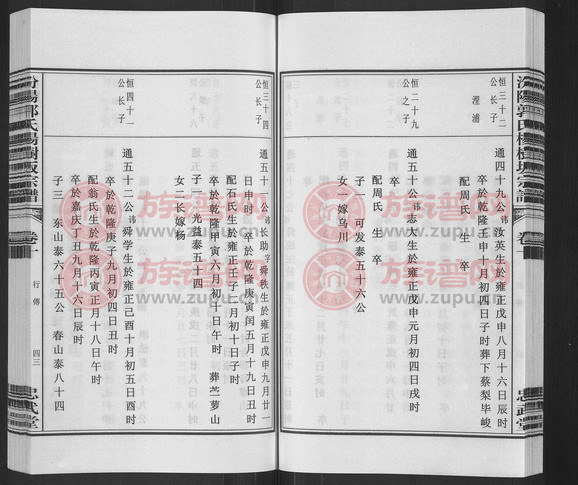 汾陽郭氏楊樹坂宗譜 卷十
忠武堂
恒三十二公長子 浬浦
通四十九公諱汝英生於雍正戊申八月十六日辰時
卒於乾隆壬申十月初四日子時葬下蔡梨毕峻
配周氏 生 卒
恒二十九公之子
通五十公諱志大生於雍正戊申元月初四日戌時
卒
配周氏生卒
子一 可发泰五十六公
女一嫁乌川
恒三十四公長子
通五十一公諱长助字舜秩生於雍正戊申九月廿一
日申时 卒於乾隆庚寅闰五月十九日丑时
配石氏生於雍正壬子二月初十日子时
卒於乾隆甲寅六月初十日午时 葬苎萝山
子一 光益泰五十四
女二長嫁杨
恒四十一公长子
通五十二公諱舜学生於雍正己酉十月初五日酉时
卒於乾隆庚子九月初四日丑时
配翁氏生於乾隆丙寅正月十八日午时
卒於嘉庆丁丑九月十六日辰时
子三 东山泰六十五公 春山泰八十四
汾陽郭氏楊樹坂宗譜 卷十 行傳 四三
忠武堂
族谱网
www.zupu.cn
族谱网
www.zupu.cn